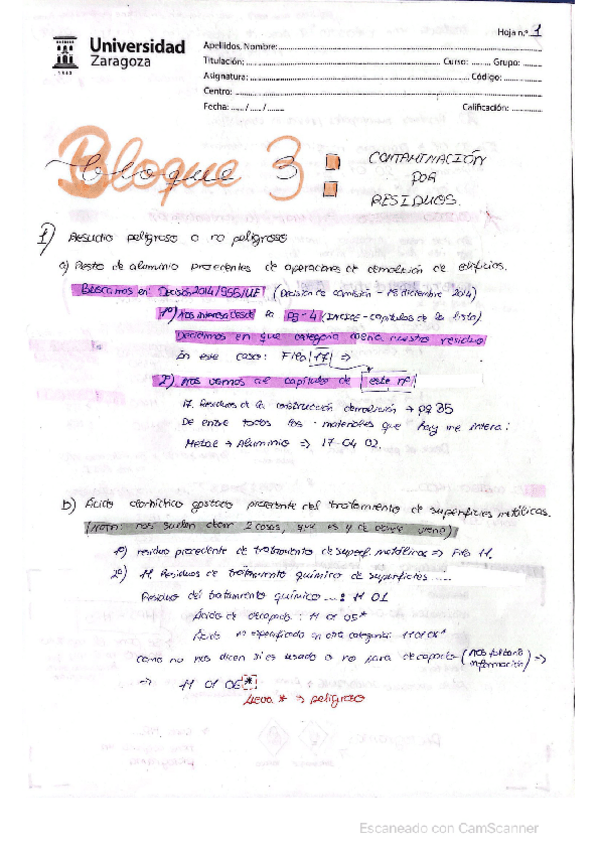 Hoja n.º 1
Universidad
Zaragoza
1542
Apellidos, Nombre:
Titulación: Curso: Grupo:
Asignatura: Código:
Centro:
Fecha: / / Calificación:
Bloque 3:
CONTAMINACIÓN
POR
RESIDUOS.
1) Residuo peligroso o no peligroso
a) Resto de aluminio procedentes de operaciones de demolición de edificios.
Buscamos en: Decisión 2014/955/UE (Decisión de comisión - 18 diciembre 2014)
1º) Nos interesa desde la pg-4 (INDICE - capítulos de la lista)
Decidimos en que categoria nuestro residuo
En este caso: Fila 17 ⇒
2º) Nos vamos al capítulo de este nº
17. Residuos de la construcción demolición → pg 35
De entre todos los materiales que hay me interesa:
Metal → Aluminio ⇒ 17 04 02.
b) Ácido clorhídrico gastado procedente del tratamiento de superficies metálicas.
(NOTA: nos suelen dar 2 cosas, que es y de donde viene)
1º) residuo procedente de tratamiento de superf. metálicas ⇒ Fila 11.
2º) 11. Residuos de tratamiento químico de superficies .....
Residuo del tratamiento químico ...: 11 01
Ácido de decapado: 11 01 05*
Ácido no especificado en otra categoria: 11 01 06*
como no nos dicen si es usado o no para decapado (nos faltaria información) ⇒
⇒ 11 01 06 *
lleva * ⇒ peligroso
Escaneado con CamScanner